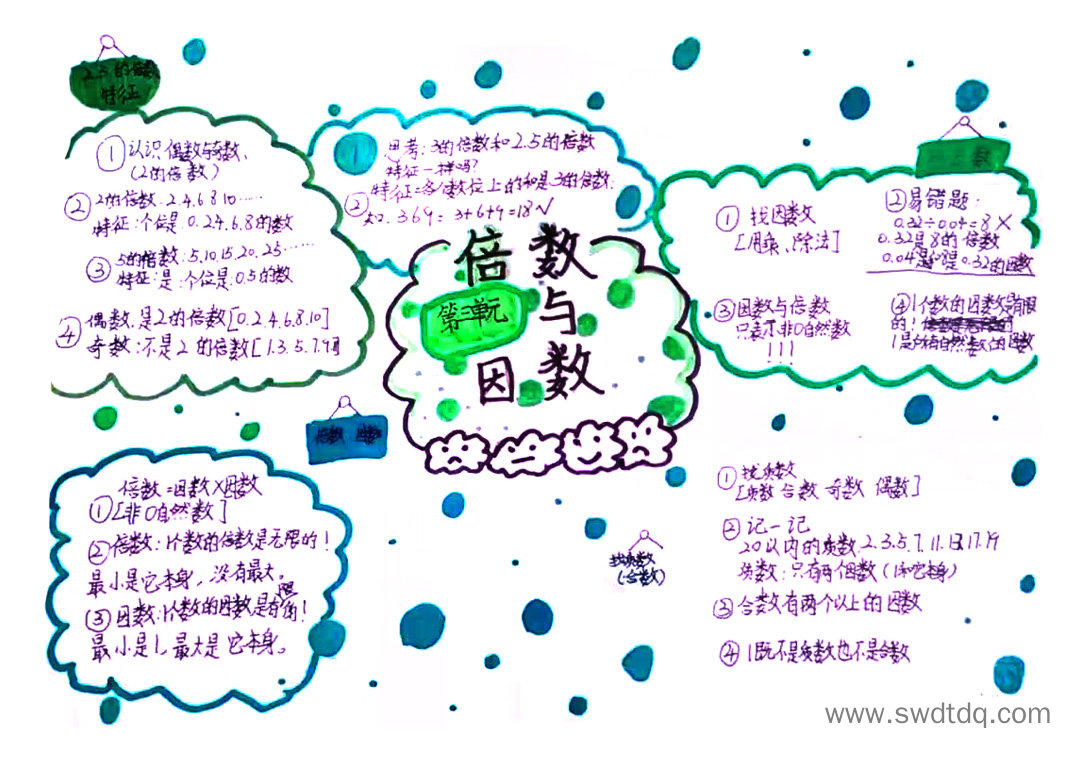 2.5的倍数
特征
①认识偶数与奇数、
(2的倍数)
②2的倍数:2.4.6.8.10……
特征:个位是0.2.4.6.8的数
③5的倍数:5.10.15.20.25……
特征:是:个位是0.5的数
④偶数:是2的倍数[0.2.4.6.8.10]
奇数:不是2的倍数[1.3.5.7.9]
①思考:3的倍数和2.5的倍数
特征一样吗?
②特征=各位数位上的和是3的倍数.
如:369=3+6+9=18√
倍数
与
因数
第三单元
找因数
①找因数
[用乘、除法]
②易错题:
0.32÷0.04=8×
0.32是8的倍数
0.04是0.32的因数
③因数与倍数
只表示非0自然数
!!!
④1个数的因数是有限
的!
1是所有自然数的因数
倍数
倍数=因数×因数
①[非0自然数]
②倍数:1个数的倍数是无限的!
最小是它本身,没有最大。
③因数:1个数的因数是有限的!
最小是1,最大是它本身。
找质数
(合数)
①找质数
[质数 合数 奇数 偶数]
②记一记
20以内的质数 2.3.5.7.11.13.17.19
质数:只有两个因数(1和它本身)
③合数有两个以上的因数
④1既不是质数也不是合数
www.swdtdq.com